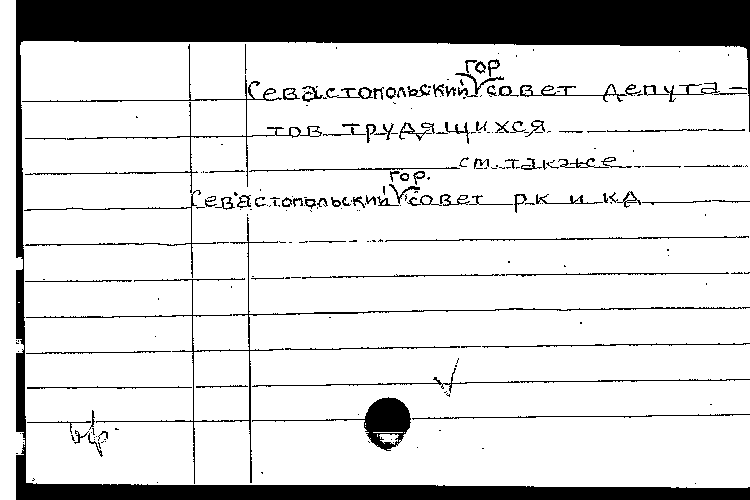 Севастопольский горсовет депута-
тов трудящихся
см. также
Севастопольский гор.совет рк и кд.